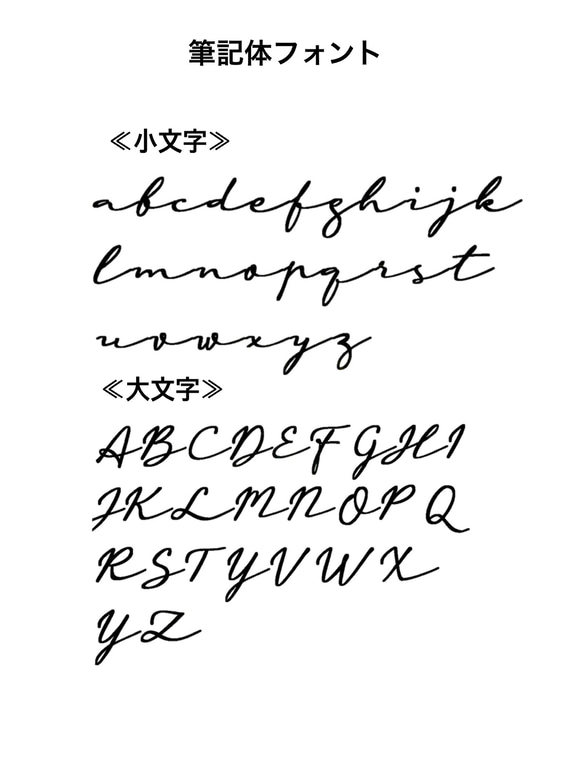 筆記体フォント
≪小文字≫
abcdefghijk
lmnopqrst
uvwxyz
≪大文字≫
ABCDEFGHI
JKLMNOPQ
RSTYVWX
YZ